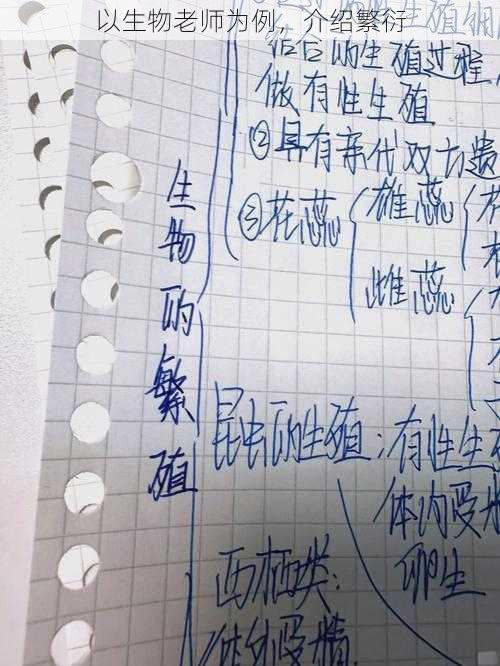 以生物老师为例,介绍繁衍
结合的生殖过程
做有性生殖
②具有亲代双方遗
③花蕊
雄蕊
雌蕊
生物的繁殖
昆虫的生殖:有性生殖
体内受精
卵生
两栖类:
体外受精